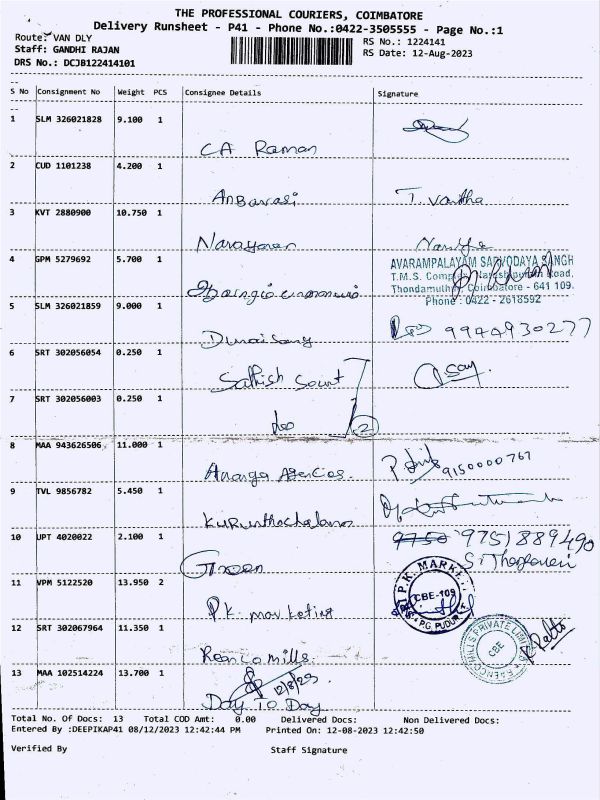 THE PROFESSIONAL COURIERS, COIMBATORE
Delivery Runsheet - P41 - Phone No.:0422-3505555 - Page No.:1
Route: VAN DLY RS No.: 1224141
Staff: GANDHI RAJAN RS Date: 12-Aug-2023
DRS No.: DCJB122414101
S No Consignment No Weight PCS Consignee Details Signature
1 SLM 326021828 9.100 1
CA Raman
2 CUD 1101238 4.200 1
Anbarasi T. Vanitha
3 KVT 2880900 10.750 1
Narayanan
4 GPM 5279692 5.700 1
AVARAMPALAYAM SARVODAYA SANGH
T.M.S. Complex Road,
Thondamuthur Coimbatore - 641 109.
Phone : 0422 - 2618592
5 SLM 326021859 9.000 1
Duraisamy 9944930277
6 SRT 302056054 0.250 1
Sathish
7 SRT 302056003 0.250 1
2
8 MAA 943626506 11.000 1
Ananga Agencies. 9150000767
9 TVL 9856782 5.450 1
10 UPT 4020022 2.100 1
Green 9750 9751889490
11 VPM 5122520 13.950 2
P.K. MARKE
CBE-109
P.G. PUDUR
P.K. marketing
12 SRT 302067964 11.350 1
MILLS PRIVATE LIMITED
CBE
Reenco mills.
13 MAA 102514224 13.700 1
12/8/23
Day To Day
Total No. Of Docs: 13 Total COD Amt: 0.00 Delivered Docs: Non Delivered Docs:
Entered By :DEEPIKAP41 08/12/2023 12:42:44 PM Printed On: 12-08-2023 12:42:50
Verified By Staff Signature